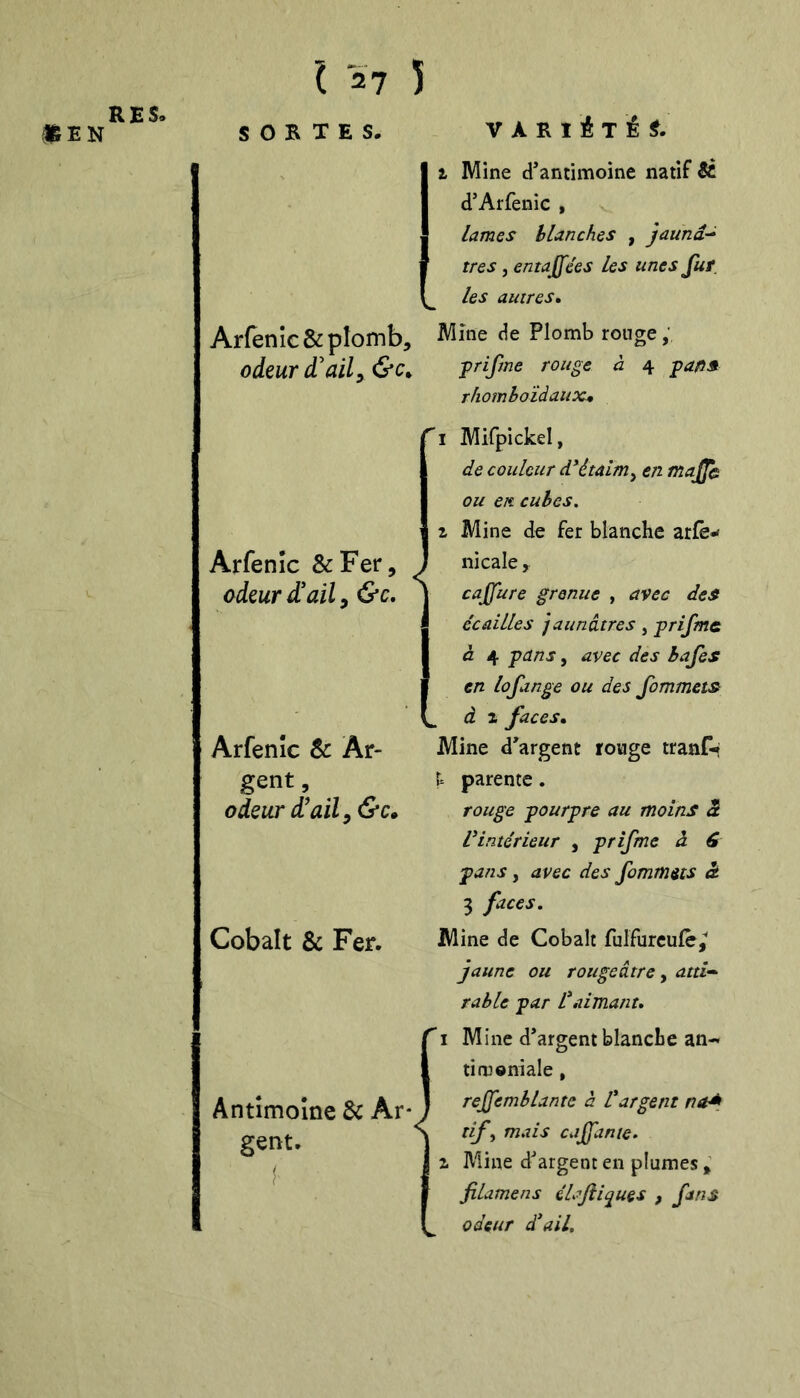 ( 27 )
GENRES.
SORTES.
VARIÉTÉS.
2 Mine d'antimoine natif &
d'Arſenic ,
lames blanches , jaunâ-
tres , entaſſées les unes ſur
les autres.
Arſenic & plomb,
odeur d'ail, &c.
Mine de Plomb rouge ,
priſme rouge à 4 pans
rhomboïdaux.
Arſenic & Fer,
odeur d'ail, &c.
1 Miſpickel,
de couleur d'étaim, en maſſe
ou en cubes.
2 Mine de fer blanche arſe-
nicale,
caſſure grenue , avec des
écailles jaunâtres , priſme
à 4 pans, avec des baſes
en loſange ou des ſommets
à 2 faces.
Arſenic & Ar-
gent,
odeur d'ail, &c.
Mine d'argent rouge tranſ-
parente.
rouge pourpre au moins à
l'intérieur , priſme à 6
pans, avec des ſommets à
3 faces.
Cobalt & Fer.
Mine de Cobalt ſulfureuſe,
jaune ou rougeâtre, atti-
rable par l'aimant.
Antimoine & Ar-
gent.
1 Mine d'argent blanche an-
timoniale ,
reſſemblante à l'argent na-
tif, mais caſſante.
2 Mine d'argent en plumes ,
filamens élaſtiques , ſans
odeur d'ail.